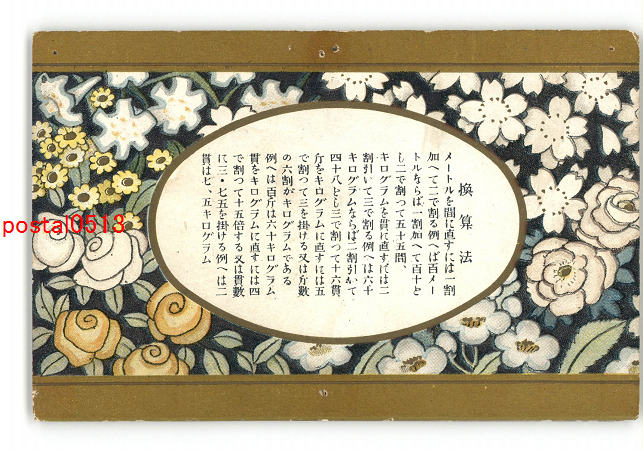 換算法
メートルを間に直すには一割
加へて二で割る例へば百メー
トルならば一割加へて百十と
し二で割って五十五間、
キログラムを貫に直すには二
割引いて三で割る例へば六十
キログラムならば二割引いて
四十八とし三で割つて十六貫、
斤をキログラムに直すには五
で割つて三を掛ける又は斤數
の六割がキログラムである
例へば百斤は六十キログラム、
貫をキログラムに直すには四
で割つて十五倍する又は貫數
に三・七五を掛ける例へば二
貫は七、五キログラム
postal0513